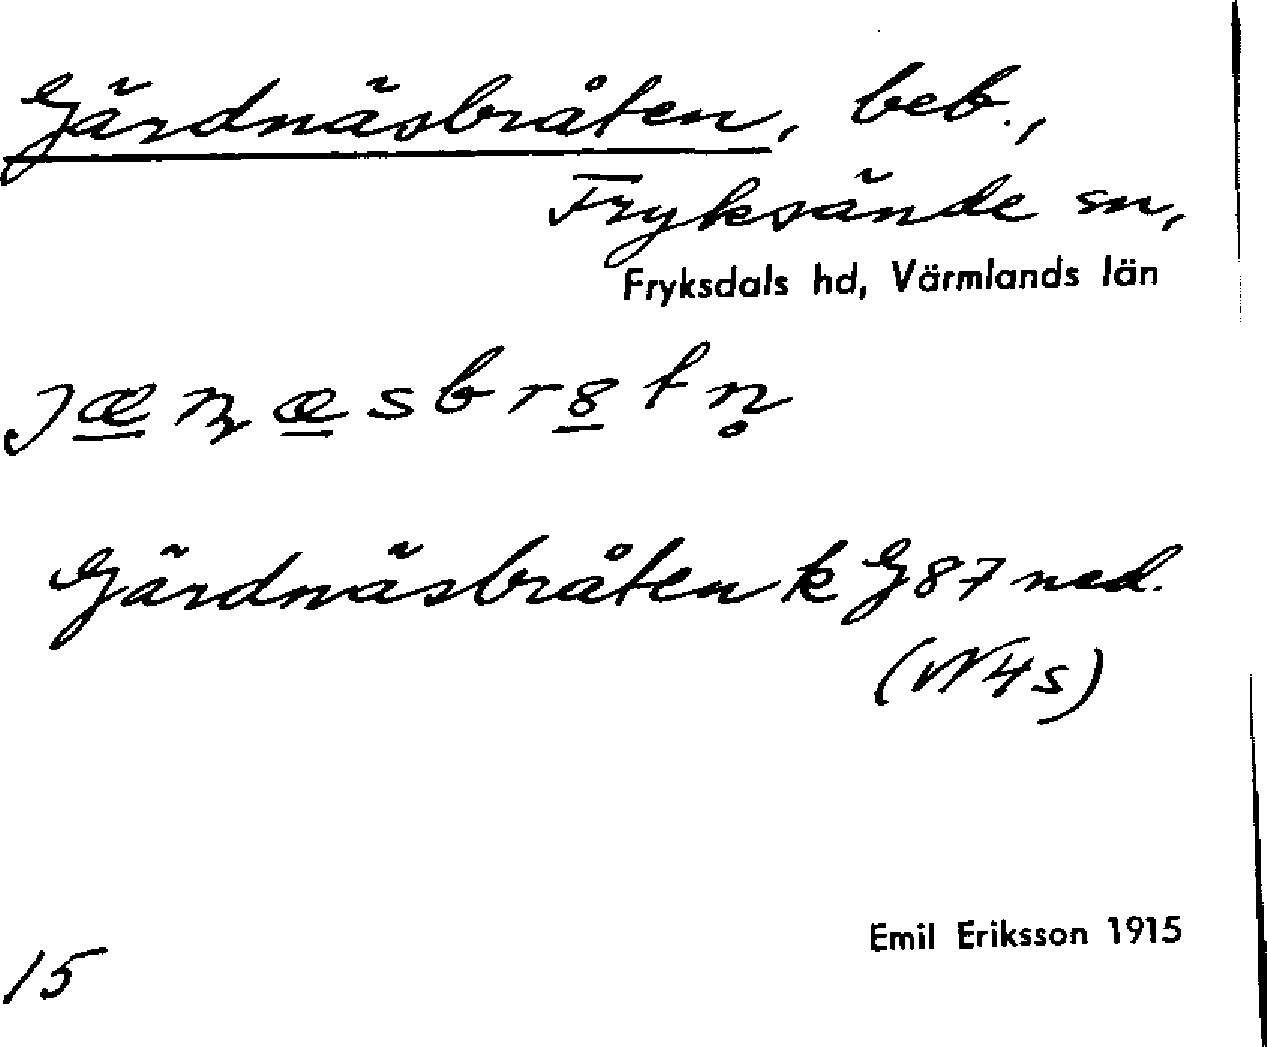 Gärdnäsbråten, beb.,
Fryksände sn,
Fryksdals hd, Värmlands län
Gärdnäsbråten k G87 ned.
(N4s)
Emil Eriksson 1915
15